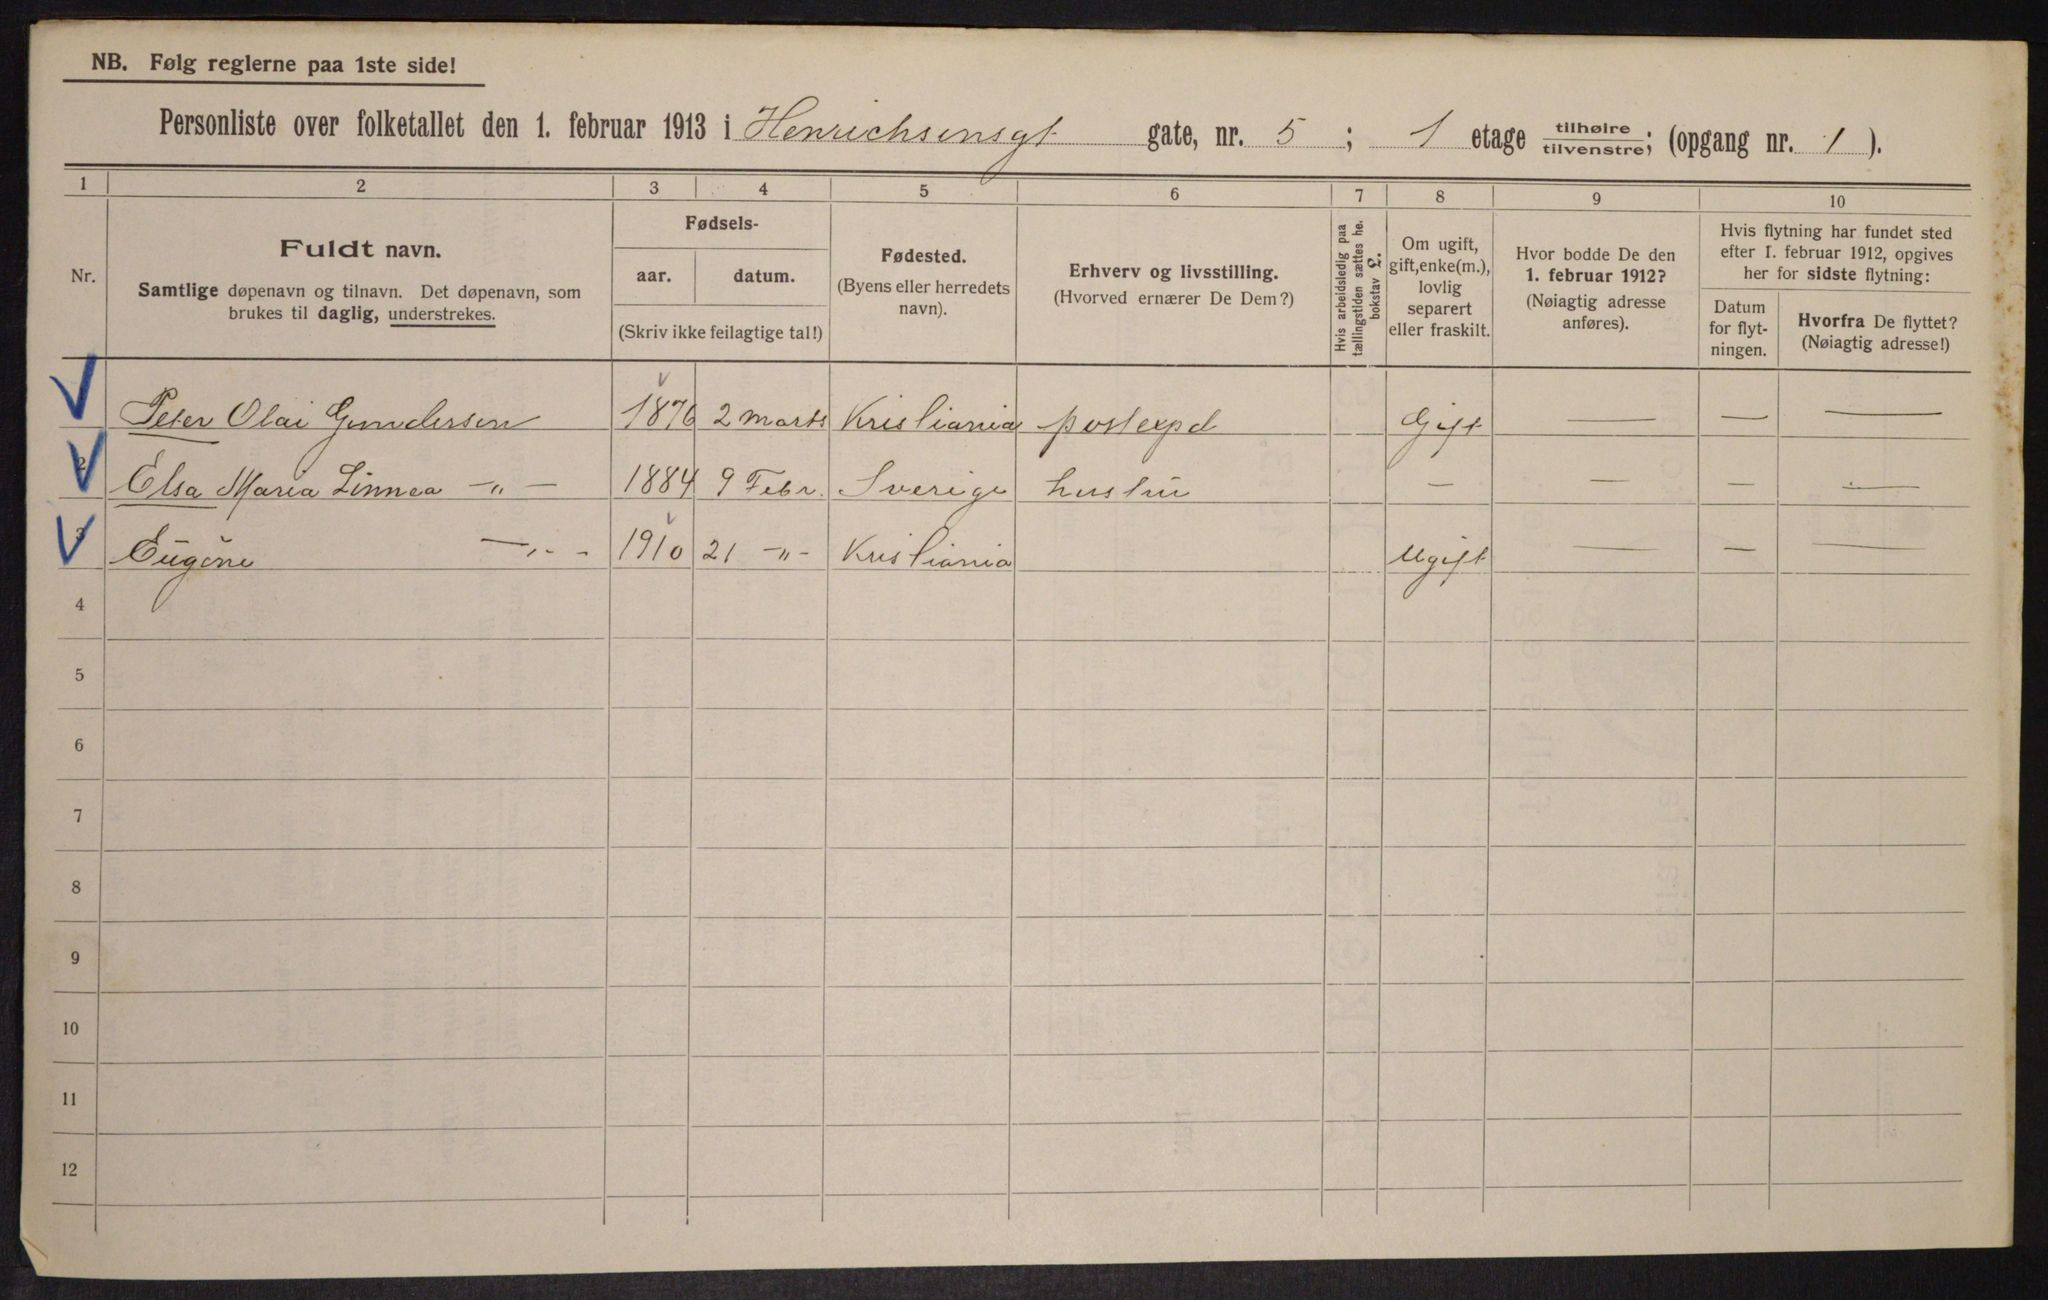 NB. Følg reglerne paa 1ste side!
Personliste over folketallet den 1. februar 1913 i Henrichsensgt gate, nr. 5 ; 1 etage tilhøire / tilvenstre; (opgang nr. 1 ).
1 2 3 4 5 6 7 8 9 10
Nr.
Fuldt navn.
Samtlige døpenavn og tilnavn. Det døpenavn, som
brukes til daglig, understrekes.
Fødsels-
aar. datum.
(Skriv ikke feilagtige tal!)
Fødested.
(Byens eller herredets
navn).
Erhverv og livsstilling.
(Hvorved ernærer De Dem?)
Hvis arbeidsledig paa
tællingstiden sættes he.
bokstav L.
Om ugift,
gift, enke(m.),
lovlig
separert
eller fraskilt.
Hvor bodde De den
1. februar 1912?
(Nøiagtig adresse
anføres).
Hvis flytning har fundet sted
efter 1. februar 1912, opgives
her for sidste flytning:
Datum
for flyt-
ningen.
Hvorfra De flyttet?
(Nøiagtig adresse!)
Peter Olai Gundersen 1876 2 marts Kristiania postexpd Gift — — —
2 Elsa Maria Linnea -"- 1884 9 Febr. Sverige hustru — — — —
3 Eugéne -"- 1910 21 -"- Kristiania Ugift — — —
4
5
6
7
8
9
10
11
12